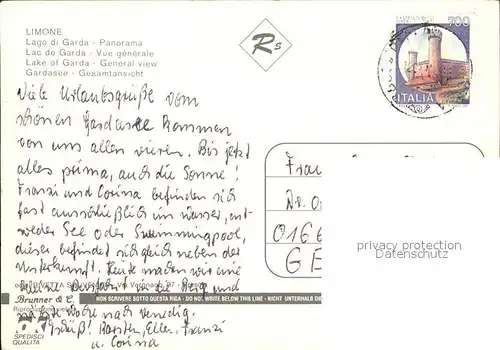 LIMONE
Lago di Garda - Panorama
Lac de Garda - Vue générale
Lake of Garda - General view
Gardasee - Gesamtansicht
Rs
700
ITALIA
Viele Urlaubsgrüße vom
schönen Gardasee kommen
von uns allen vieren. Bis jetzt
alles prima, auch die Sonne!
Franzi und Corina befinden sich
fast ausschließlich im Wasser, ent-
weder See oder Swimmingpool,
dieser befindet sich gleich neben der
Unterkunft. Heute machen wir eine
kleine in die Berge und
nächste Woche nach Venedig.
Grüße! Franzi
u. Corina
Frau
Dr.
0166
GE
privacy protection
Datenschutz
Brunner & C.
NON SCRIVERE SOTTO QUESTA RIGA - DO NOT WRITE BELOW THIS LINE - NICHT UNTERHALB
SPEDISCI
QUALITÀ